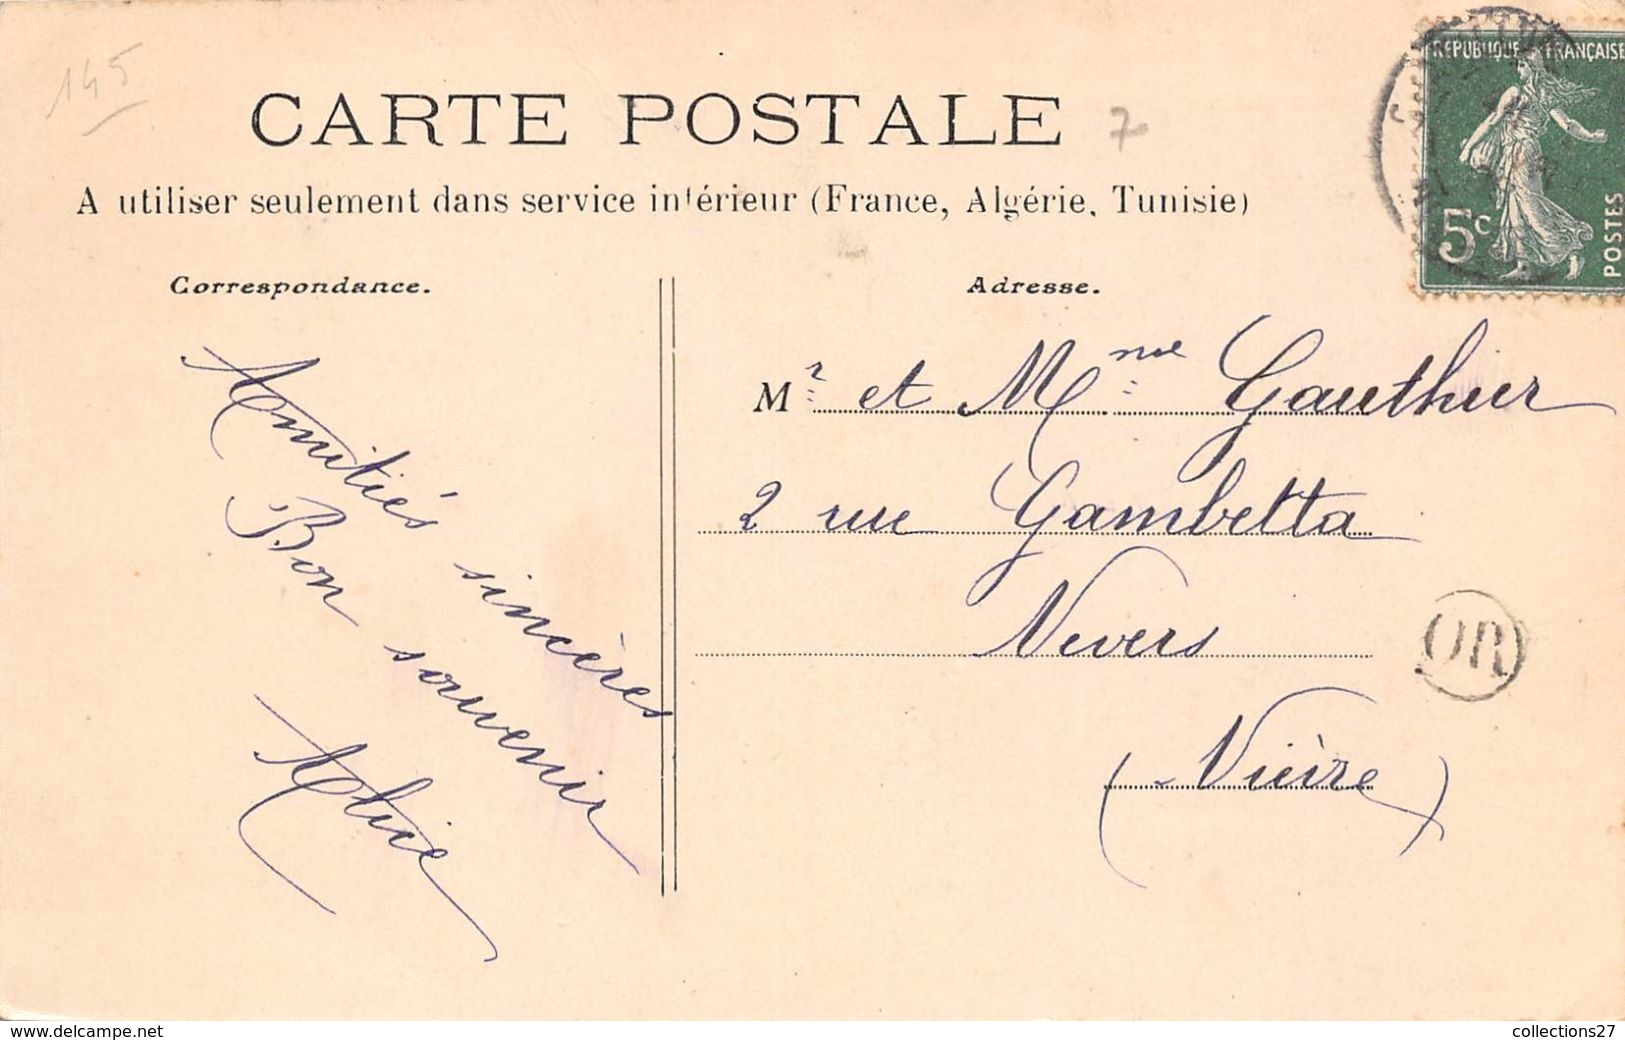 145
CARTE POSTALE
7
A utiliser seulement dans service intérieur (France, Algérie, Tunisie)
REPUBLIQUE FRANÇAISE
5c
POSTES
Correspondance.
Amitiés sincères
Bon souvenir
Alice
Adresse.
Mr et Mme Gauthier
2 rue Gambetta
Nevers
(Nièvre)
OR
www.delcampe.net
collections27